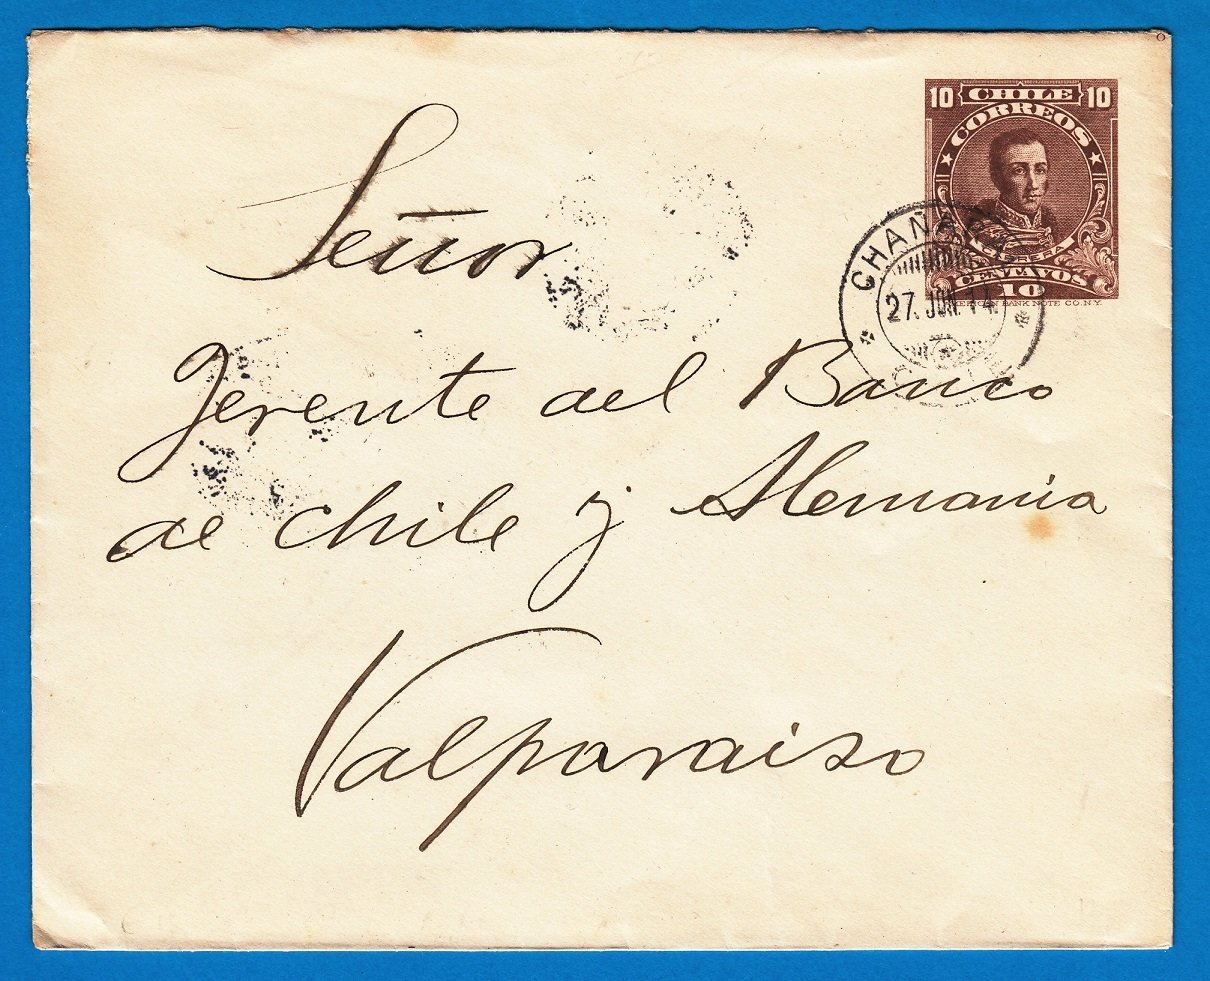 10 CHILE 10
CORREOS
CENTAVOS
10
BANK NOTE CO. N.Y.
27. JUN. 14
Señor
Gerente del Banco
de Chile y Alemania
Valparaiso